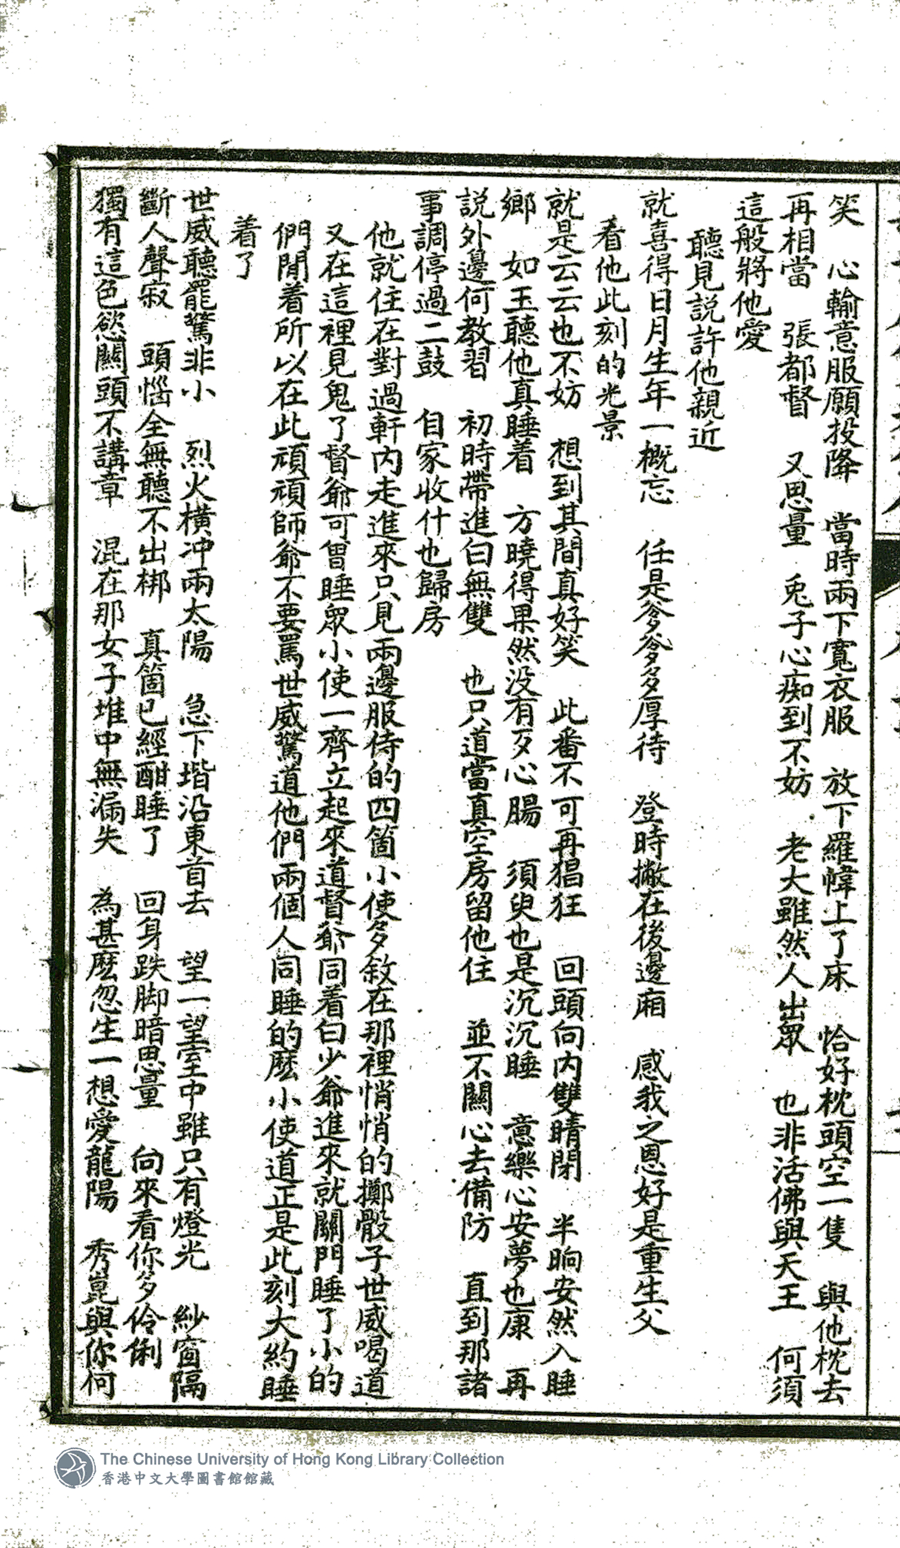 笑　心輸意服願投降　當時兩下寬衣服　放下羅幃上了床　恰好枕頭空一隻　與他枕去
再相當　張都督　又思量　兎子心痴到不妨　老大雖然人出眾　也非活佛與天王　何須
這般將他愛
聽見説許他親近
就喜得日月生年一概忘　任是爹爹多厚待　登時撇在後邊廂　感我之恩好是重生父
看他此刻的光景
就是云云也不妨　想到其間真好笑　此番不可再猖狂　回頭向内雙睛閉　半晌安然入睡
鄉　如玉聽他真睡着　方曉得果然没有歹心腸　須臾也是沉沉睡　意樂心安夢也康　再
説外邊何教習　初時帶進白無雙　也只道當真空房留他住　並不關心去備防　直到那諸
事調停過二鼓　自家收什也歸房
他就住在對過軒内走進來只見兩邊服侍的四箇小使多敘在那裡悄悄的擲骰子世威喝道
又在這裡見鬼了督爺可曾睡眾小使一齊立起來道督爺同着白少爺進來就關門睡了小的
們閒着所以在此頑頑師爺不要罵世威驚道他們兩個人同睡的麽小使道正是此刻大約睡
着了
世威聽罷驚非小　烈火橫冲兩太陽　急下堦沿東首去　望一望室中雖只有燈光　紗窗隔
斷人聲寂　頭惱全無聽不出梆　真箇已經酣睡了　回身跌脚暗思量　向來看你多伶俐
獨有這色慾關頭不講章　混在那女子堆中無漏失　為甚麽忽生一想愛龍陽　秀崑與你何
The Chinese University of Hong Kong Library Collection
香港中文大學圖書館館藏